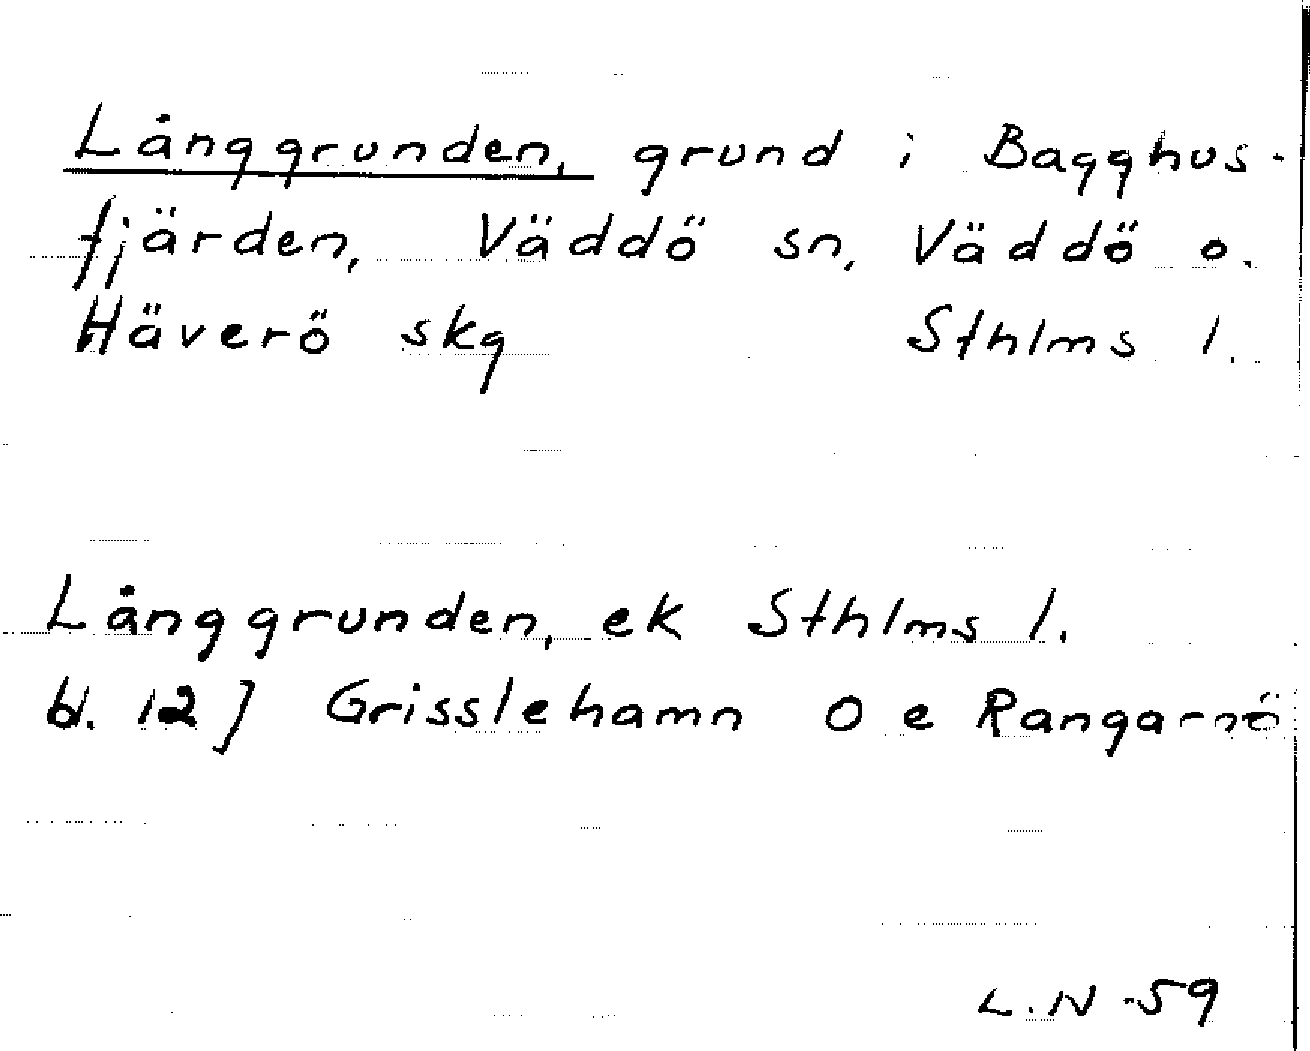 Långgrunden, grund i Bagghus-
fjärden, Väddö sn, Väddö o.
Häverö skg Sthlms l.
Långgrunden, ek Sthlms l.
bl. 12] Grisslehamn O e Rangarnö
L.N -59